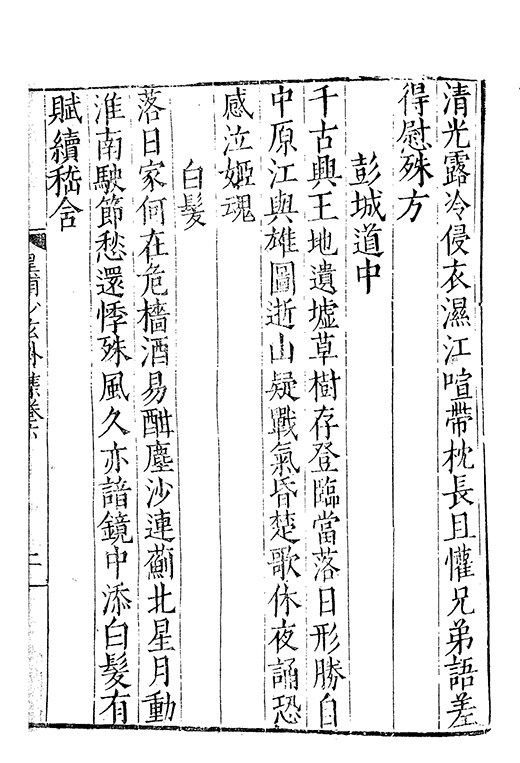 清光露冷侵衣濕江喧帶枕長且懽兄弟語差
得慰殊方
彭城道中
千古興王地遺墟草樹存登臨當落日形勝自
中原江與雄圖逝山疑戰氣昏楚歌休夜誦恐
感泣姬魂
白髮
落日家何在危檣酒易酣塵沙連薊北星月動
淮南駛節愁還悸殊風久亦諳鏡中添白髮有
賦續嵇舍